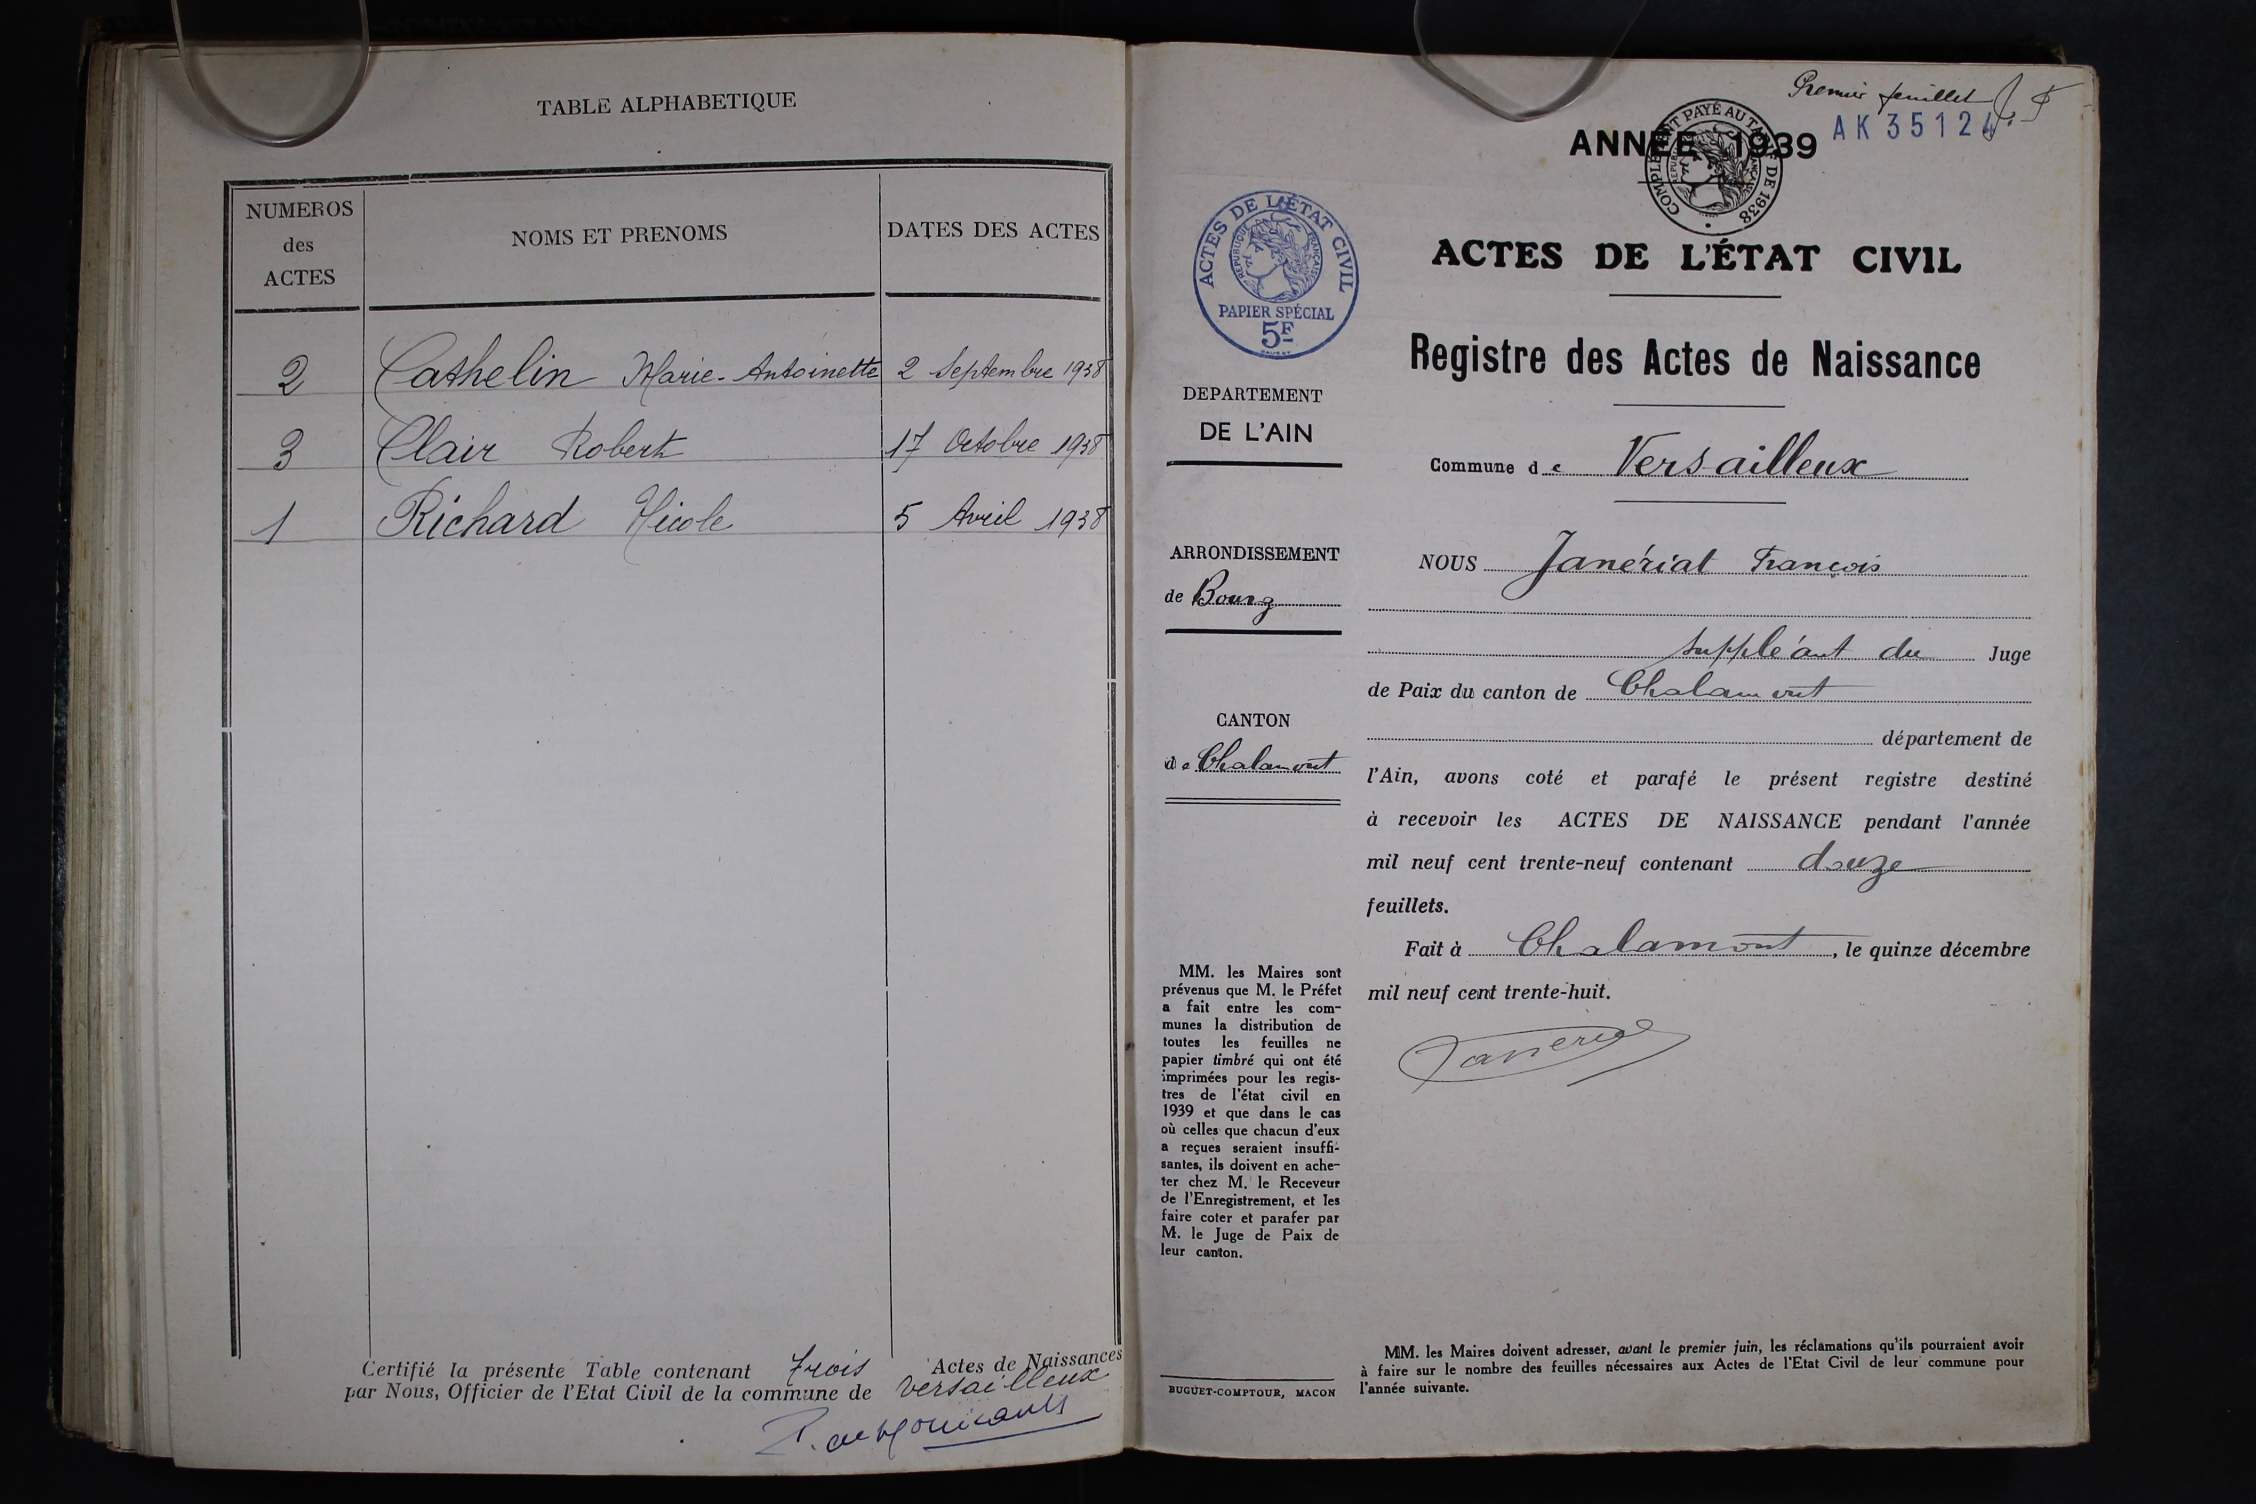 TABLE ALPHABETIQUE
NUMEROS
des
ACTES
NOMS ET PRENOMS
DATES DES ACTES
2 Cathelin Marie-Antoinette 2 Septembre 1938
3 Clair Robert 17 Octobre 1938
1 Richard Nicole 5 Avril 1938
Certifié la présente Table contenant trois Actes de Naissances
par Nous, Officier de l'Etat Civil de la commune de Versailleux
Premier feuillet J. F
AK 35124
ANNÉE 1939
COMPLÉMENT PAYÉ AU TARIF DE 1938
RÉPUBLIQUE FRANÇAISE
ACTES DE L'ÉTAT CIVIL
RÉPUBLIQUE FRANÇAISE
PAPIER SPÉCIAL
5F
ACTES DE L'ÉTAT CIVIL
Registre des Actes de Naissance
DEPARTEMENT
DE L'AIN
Commune de Versailleux
ARRONDISSEMENT
de Bourg
CANTON
de Chalamont
NOUS Janériat François
suppléant du Juge
de Paix du canton de Chalamont
département de
l'Ain, avons coté et parafé le présent registre destiné
à recevoir les ACTES DE NAISSANCE pendant l'année
mil neuf cent trente-neuf contenant douze
feuillets.
Fait à Chalamont, le quinze décembre
mil neuf cent trente-huit.
Janeriat
MM. les Maires sont
prévenus que M. le Préfet
a fait entre les com-
munes la distribution de
toutes les feuilles ne
papier timbré qui ont été
imprimées pour les regis-
tres de l'état civil en
1939 et que dans le cas
où celles que chacun d'eux
a reçues seraient insuffi-
santes, ils doivent en ache-
ter chez M. le Receveur
de l'Enregistrement, et les
faire coter et parafer par
M. le Juge de Paix de
leur canton.
BUGUET-COMPTOUR, MACON
MM. les Maires doivent adresser, avant le premier juin, les réclamations qu'ils pourraient avoir
à faire sur le nombre des feuilles nécessaires aux Actes de l'Etat Civil de leur commune pour
l'année suivante.